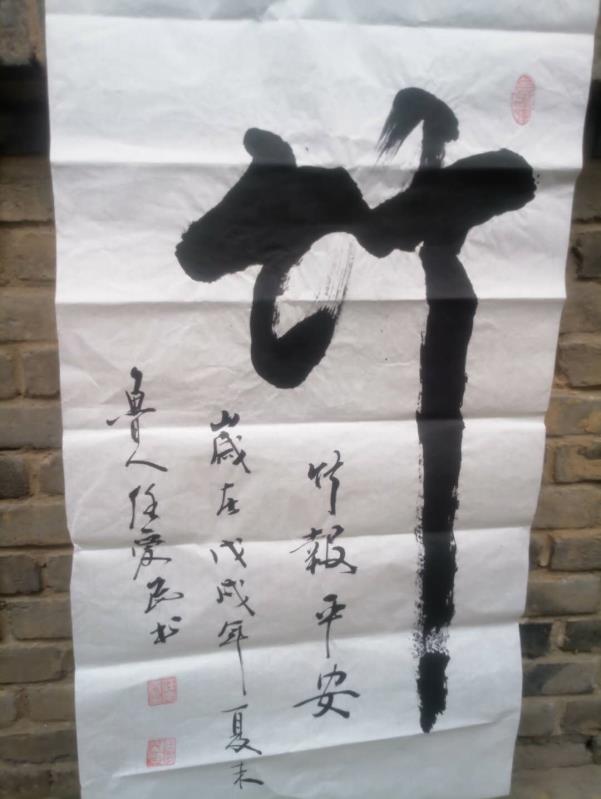 竹
竹報平安
歲在戊戌年夏末
魯人任愛民书